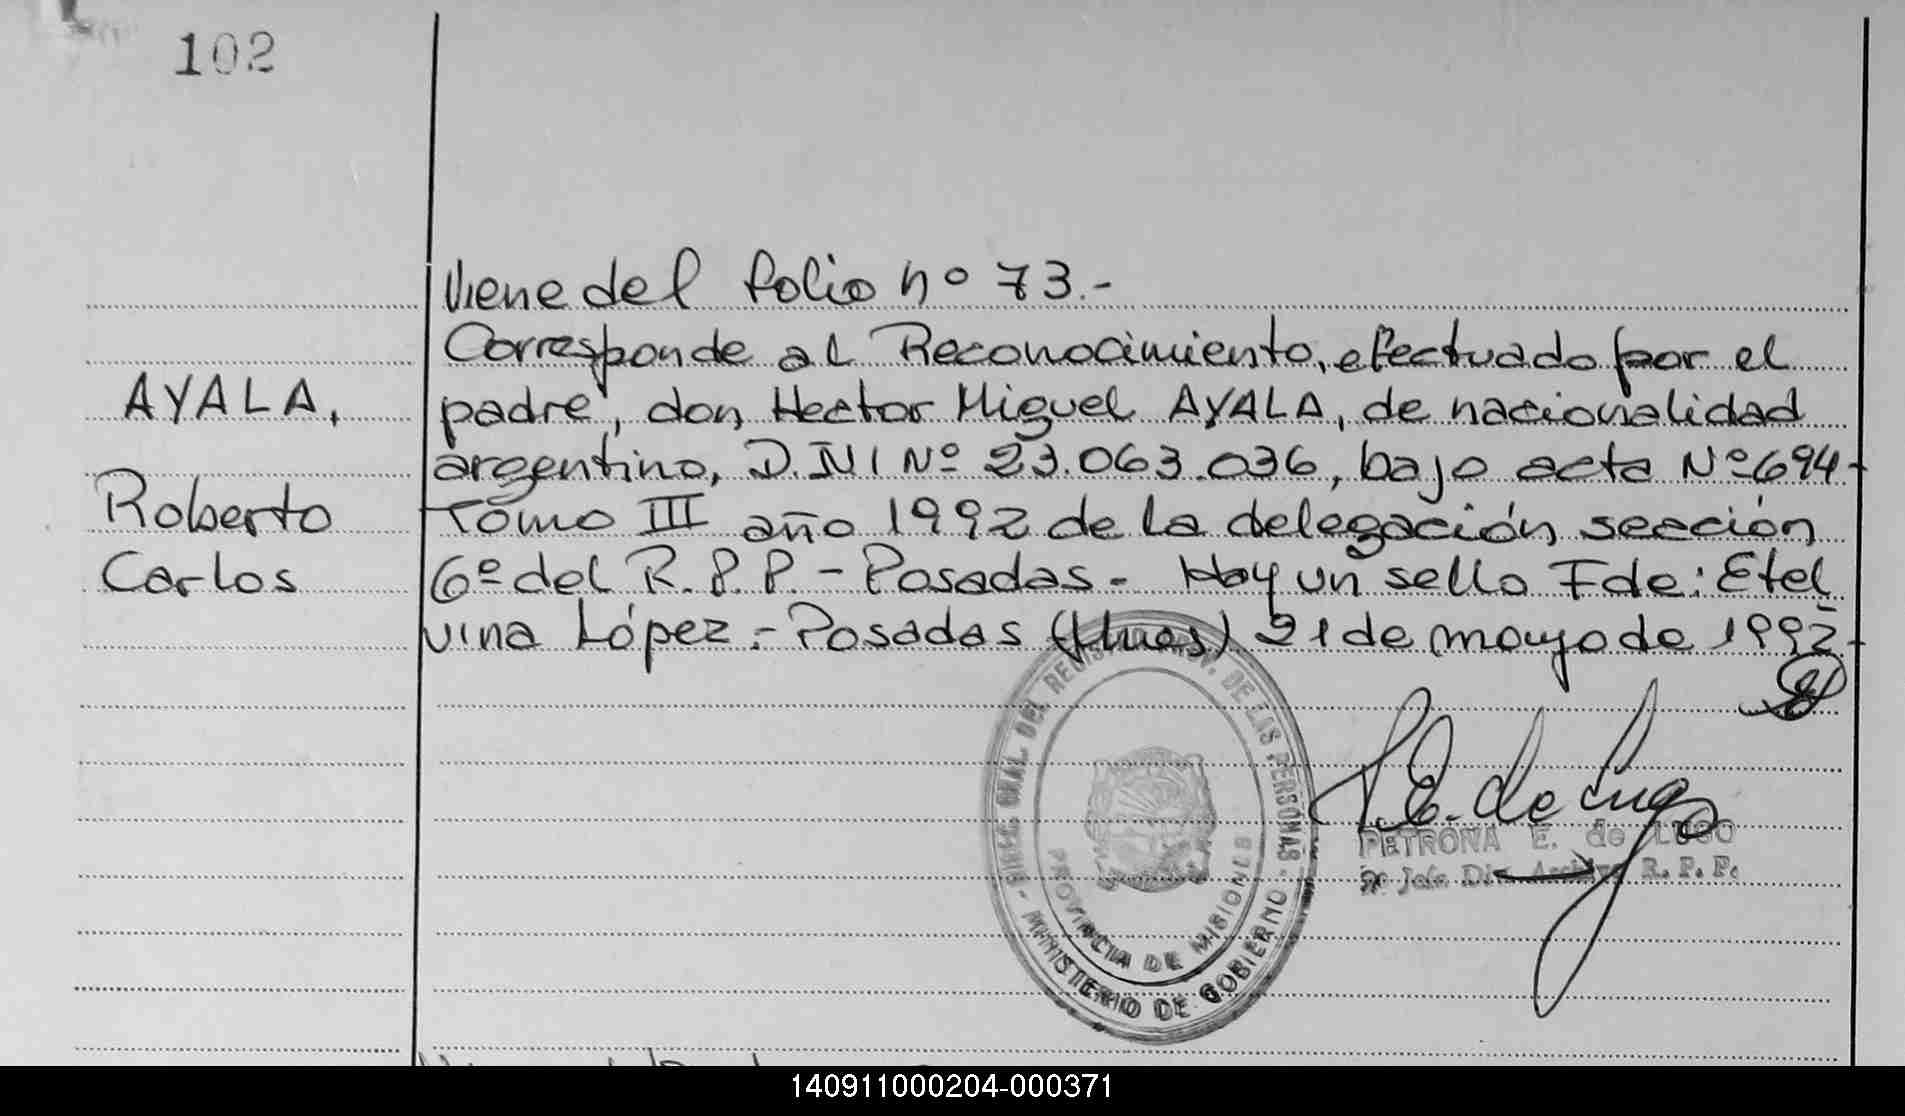 102
Viene del folio nº 73.-
Corresponde al Reconocimiento, efectuado por el
AYALA, padre, don, Hector Miguel AYALA, de nacionalidad
argentino, D.NI Nº 23.063.036, bajo acta Nº 694-
Roberto Tomo III año 1992 de la delegación, sección
Carlos 6º del R.P.P. - Posadas - Hay un sello Fde: Etel
vina López.- Posadas (Mnes) 21 de mayo de 1992-
DIREC. GRAL. DEL REGISTRO PROV. DE LAS PERSONAS - MINISTERIO DE GOBIERNO -
PROVINCIA DE MISIONES
P.E. de Lugo
PETRONA E. de LUGO
Jefe Div. Archivo R.P.P.
140911000204-000371